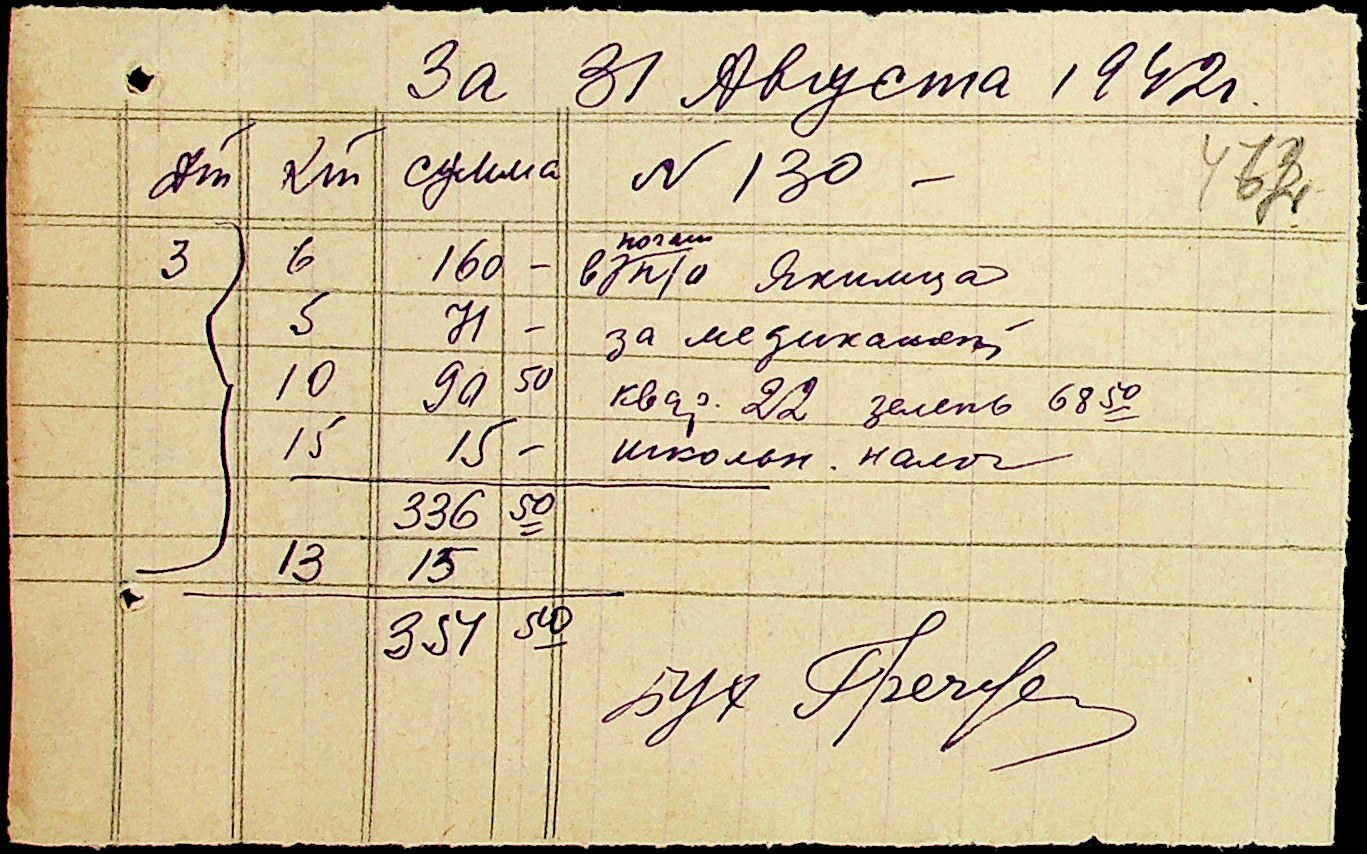 За 31 Августа 1942г.
Дт Кт сумма N 130 –
3 6 160 – в п/о Якимца
5 71 – за медикамент
10 90 50 квар. 22 зелень 68 50
15 15 – школьн. налог
336 50
13 15
351 50
бух